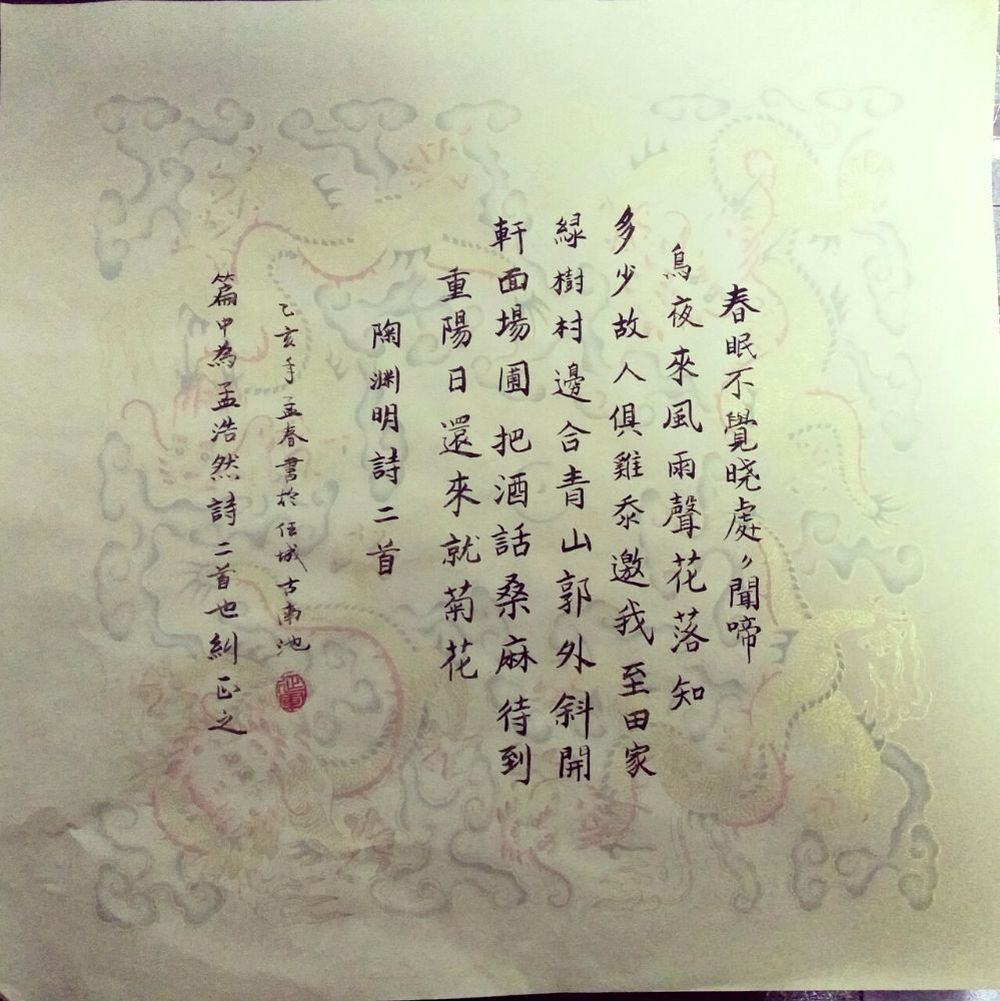 春眠不覺晓處〃聞啼
鳥夜來風雨聲花落知
多少故人俱雞黍邀我至田家
緑樹村邊合青山郭外斜開
軒面場圃把酒話桑麻待到
重陽日還來就菊花
陶渊明詩二首
乙亥年孟春書於任城古南池
篇中為孟浩然詩二首也糾正之